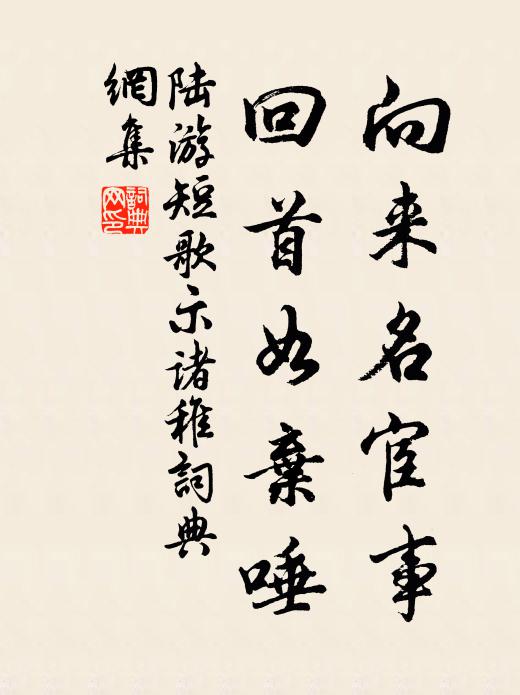 向来名宦事
回首如棄唾
陆游短歌示诸稚詞典
網集
詞典
网印